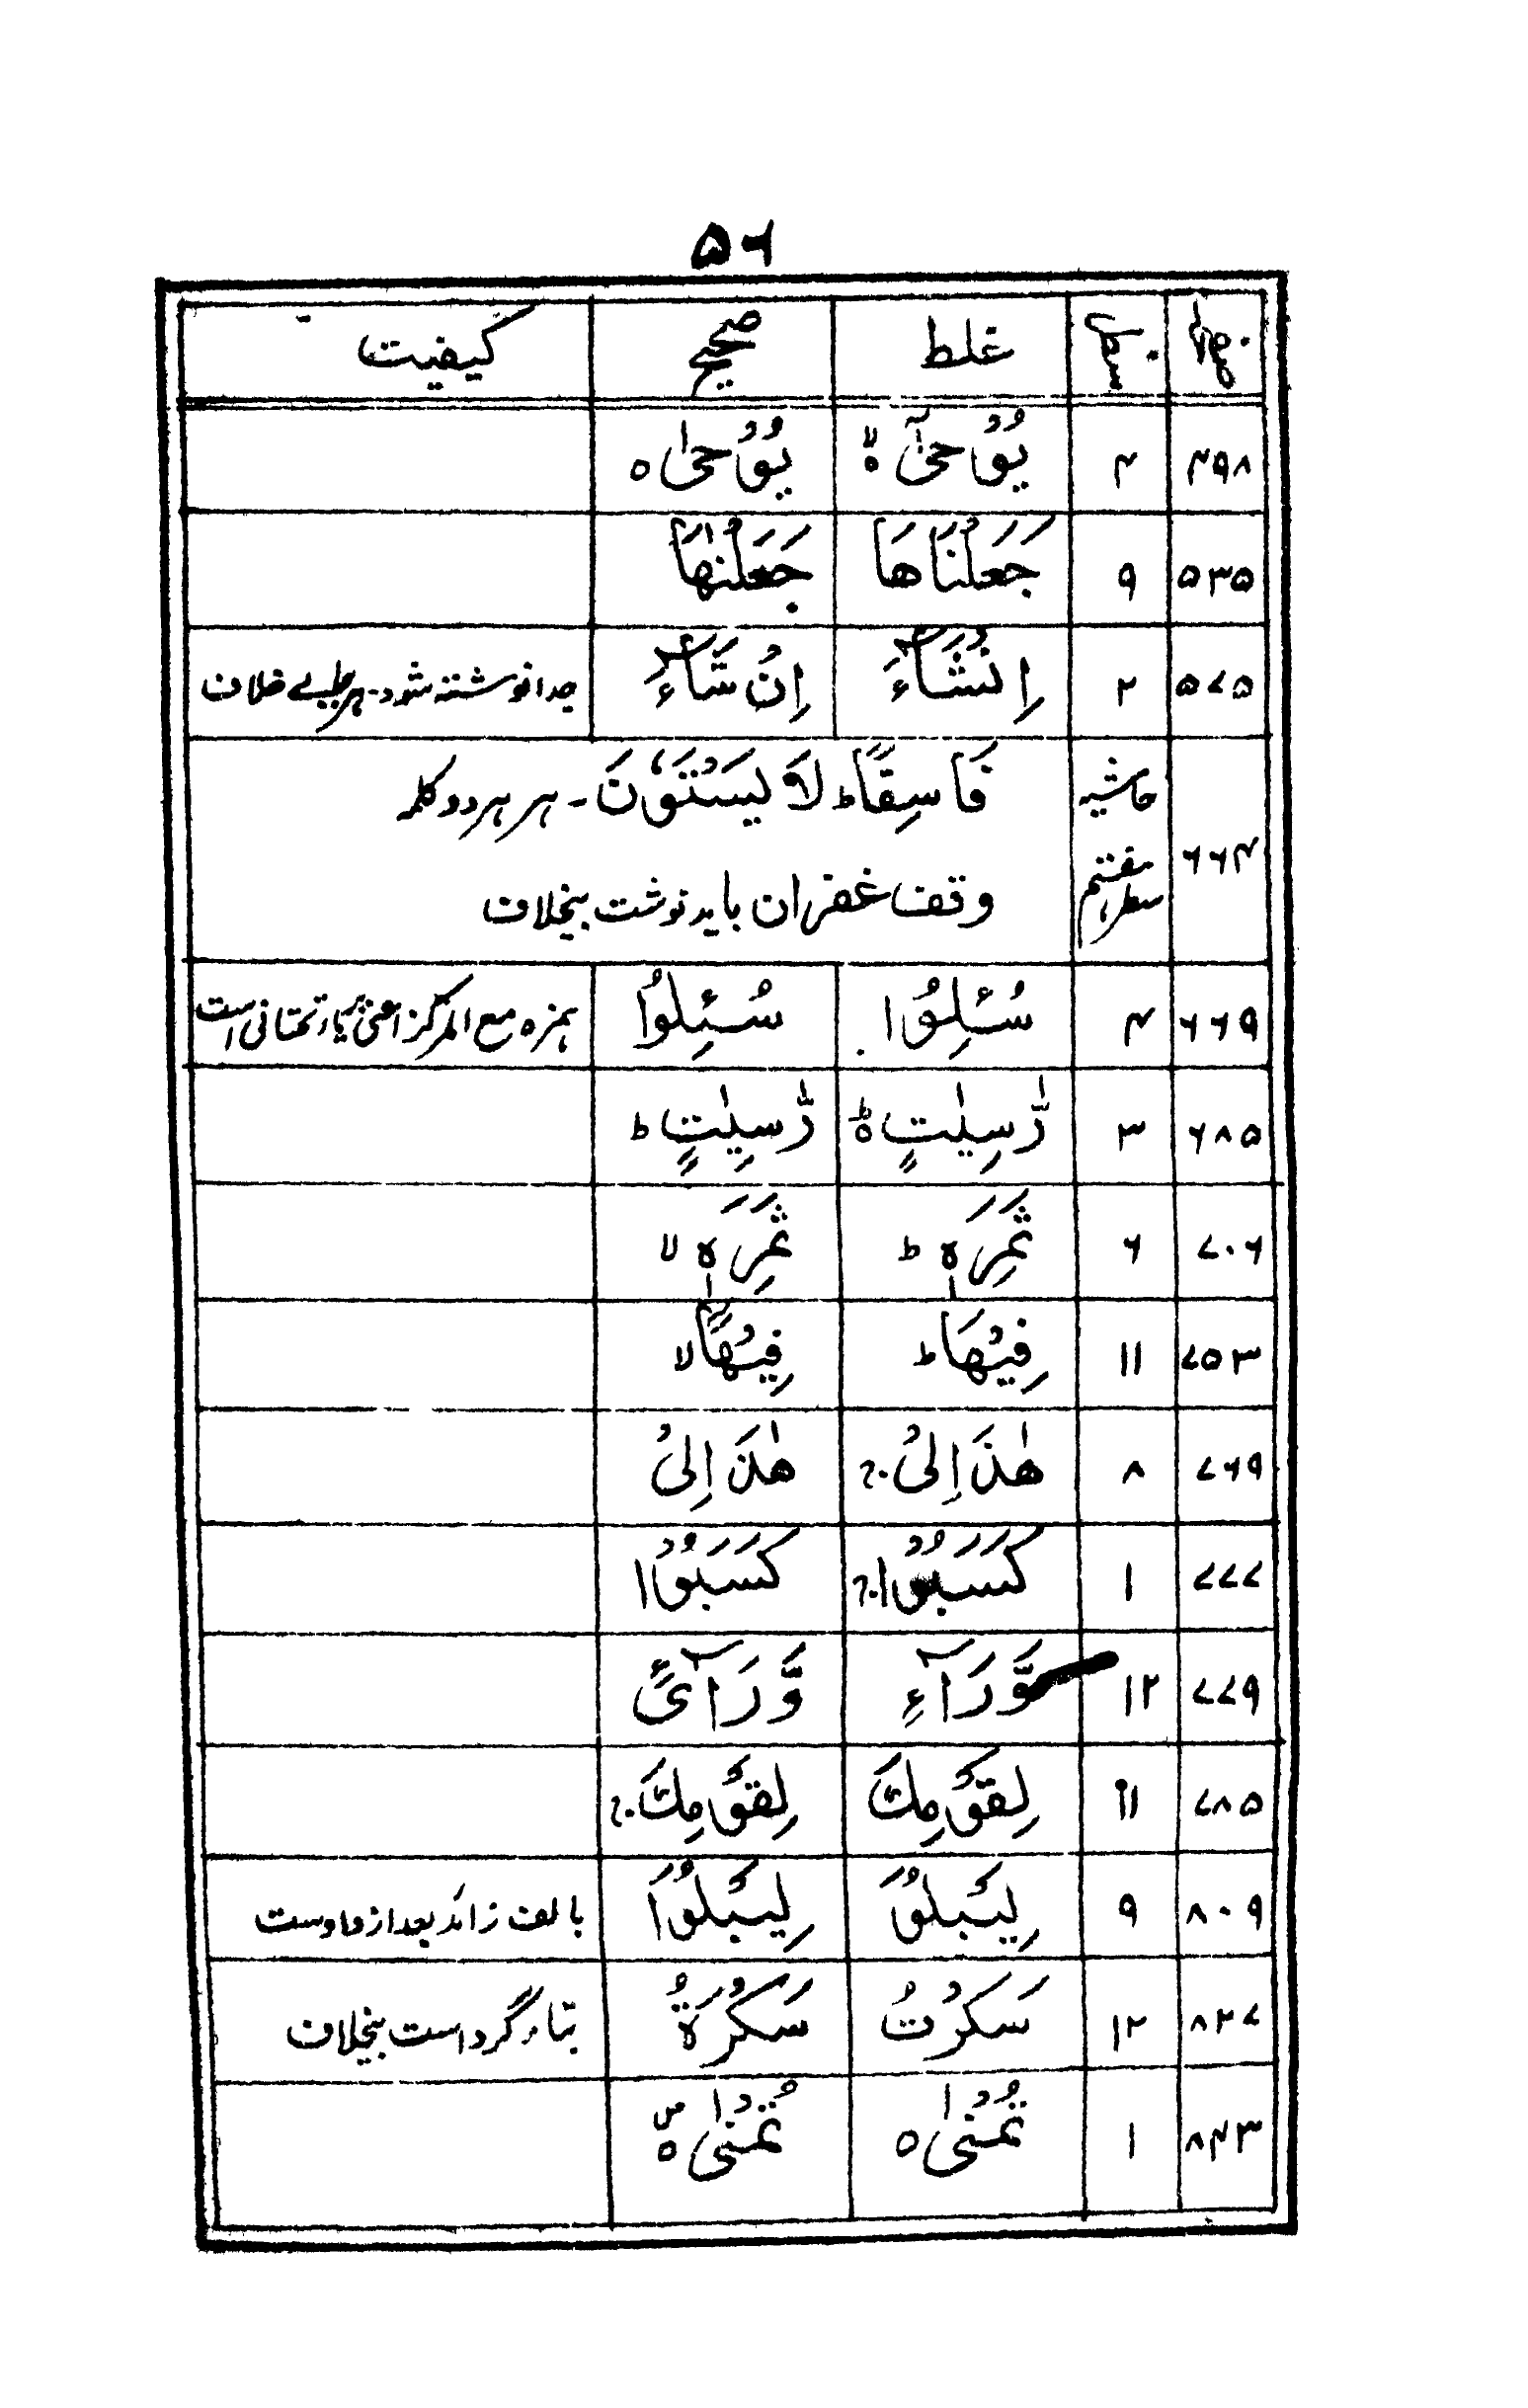 ۵۶
نمبر صفحہ نمبر سطر غلط صحیح کیفیت
۴۹۸ ۴ یُوْحٰیٓ ۙ۵ یُوْحٰی ہ
۵۳۵ ۹ جَعَلْنَاهَا جَعَلْنٰهَا
۵۷۵ ۲ اِنْشَآءَ اِنْ شَآءَ جدا نوشتہ شود۔ خلاف
۶۶۴ حاشیہ فَاسِقًا ط لَا یَسْتَوٗنَ ۔ ہر ہر دو کلمہ
سطر ہفتم وقف غفران باید نوشت بخلاف
۶۶۹ ۴ سُئِلُوْا سُئِلُوْا ہمزہ مع المرکز اعنی یاء تحتانی است
۶۸۵ ۳ رّٰسِیٰتٍ ۵ط رّٰسِیٰتٍ ط
۷۰۶ ۶ ثَمَرِهٖ ط ثَمَرِهٖ لا
۷۵۳ ۱۱ فِیْهَا ط فِیْهَا لا
۷۶۹ ۸ هٰذَ اِلیْ هٰذَ اِلیْ
۷۷۷ ۱ كَسَبُوْا كَسَبُوْا
۷۷۹ ۱۲ وَّرَآءِ وَّرَآئِ
۷۸۵ ۱۱ لِقَوْمِكَ لِقَوْمِكَ
۸۰۹ ۹ لِیَبْلُوَ لِیَبْلُوَا بالف زائد بعد از واوست
۸۲۷ ۱۲ سَكْرَتُ سَكْرَةُ بتاء گرد است بخلاف
۸۴۳ ۱ تُمْنٰی ہ تُمْنٰی ۵ص